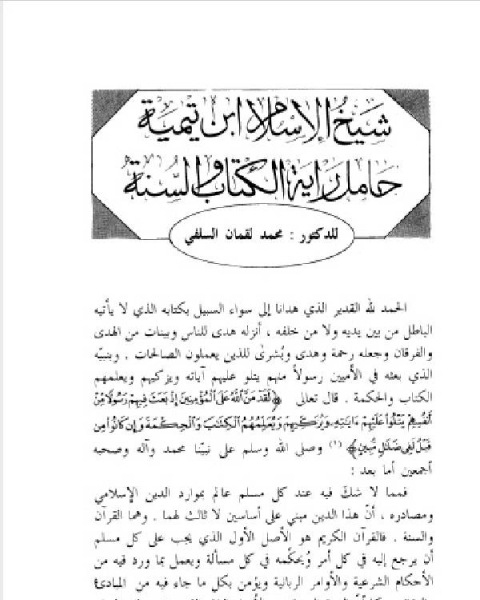 شيخ الإسلام ابن تيمية
حامل راية الكتاب والسنة
للدكتور : محمد لقمان السلفي
الحمد لله القدير الذي هدانا إلى سواء السبيل بكتابه الذي لا يأتيه
الباطل من بين يديه ولا من خلفه ، أنزله هدى للناس وبينات من الهدى
والفرقان وجعله رحمة وهدى وبُشرىٰ للذين يعملون الصالحات . وبنبيّه
الذي بعثه في الأميين رسولاً منهم يتلو عليهم آياته ويزكيهم ويعلمهم
الكتاب والحكمة . قال تعالى ﴿لَقَدْ مَنَّ اللَّهُ عَلَى الْمُؤْمِنِينَ إِذْ بَعَثَ فِيهِمْ رَسُولًا مِّنْ
أَنفُسِهِمْ يَتْلُوا عَلَيْهِمْ ءَايَتِهِ وَيُزَكِّيهِمْ وَيُعَلِّمُهُمُ الْكِتَبَ وَالْحِكْمَةَ وَإِن كَانُوا مِن
قَبْلُ لَفِي ضَلَلٍ مُّبِينٍ﴾ (١) وصلى الله وسلم على نبيّنا محمد وآله وصحبه
أجمعين أما بعد :
فمما لا شكّ فيه عند كل مسلم عالم بموارد الدين الإسلامي
ومصادره ، أنّ هذا الدين مبني على أساسين لا ثالث لهما . وهما القرآن
والسنة . فالقرآن الكريم هو الأصل الأول الذي يجب على كل مسلم
أن يرجع إليه في كل أمر ويُحكّمه في كل مسألة ويعمل بما ورد فيه من
الأحكام الشرعية والأوامر الربانية ويؤمن بكل ما جاء فيه من المبادئ